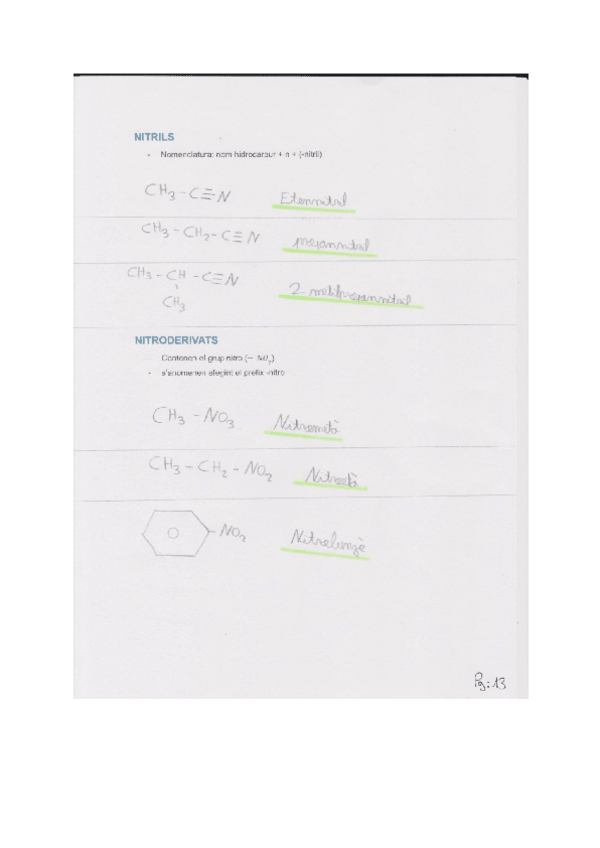 NITRILS
- Nomenclatura: nom hidrocarbur + n + (-nitril)
CH3 - C≡N Etannitril
CH3 - CH2 - C≡N propannitril
CH3 - CH - C≡N 2 metilpropannitril
CH3
NITRODERIVATS
Contenen el grup nitro (– NO2)
- s'anomenen afegint el prefix -nitro
CH3 - NO3 Nitrometà
CH3 - CH2 - NO2 Nitroetà
NO2 Nitrobenzè
Pg: 13